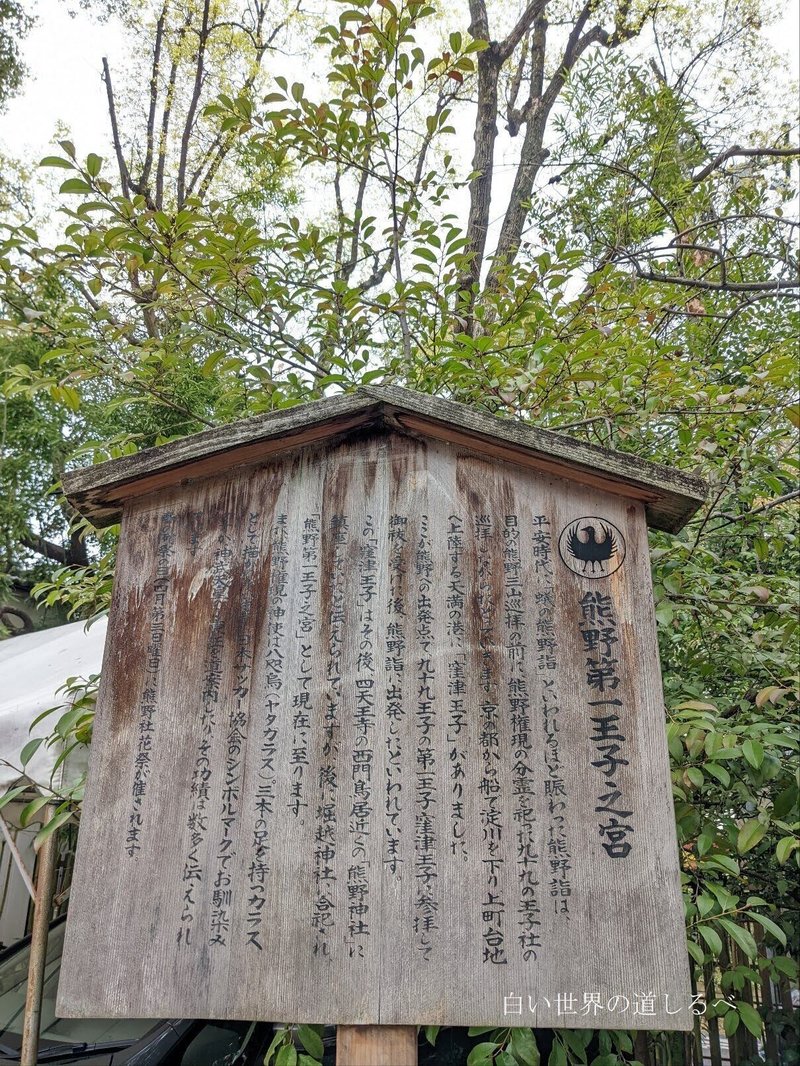 熊野第一王子之宮
平安時代に「蟻の熊野詣」といわれるほど賑わった熊野詣は、
目的の熊野三山巡拝の前に、熊野権現の分霊を祀った九十九の王子社の
巡拝 京の都から船で淀川を下り上町台地
へ上陸する天満の港に「窪津王子」がありました。
ここが熊野への出発点で九十九王子の第一王子窪津王子に参拝して
御祓を受けた後、熊野詣に出発したといわれています。
この「窪津王子」はその後、四天王寺の西門鳥居近くの「熊野神社」に
鎮座していたと伝えられていますが、後に堀越神社に合祀され
「熊野第一王子之宮」として現在に至ります。
また熊野権現の神使は八咫烏(ヤタカラス)。三本の足を持つカラス
として描かれ 日本サッカー協会のシンボルマークでお馴染み
神武天皇 道案内したり、その功績は数多く伝えられ
祭の 四月第三日曜日に熊野社花祭が催されます
白い世界の道しるべ